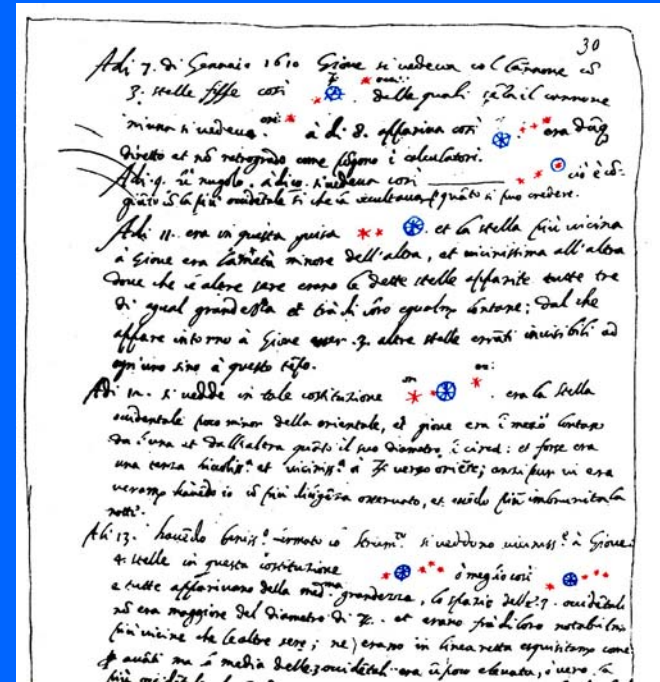 30
Adi 7. di Gennaio 1610 Giove si vedeva col Cannone cõ
3. stelle fisse così delle quali sẽza il cannone
niuna si vedeva. à di 8. appariva così era dũq
diretto et nõ retrogrado come põgono i calculatori.
Adi 9. fù nugolo. à di 10. si vedeva così cio è cõ-
giũto cõ la più occidetale si che la occultava p quãto si può credere.
Adi 11. era in questa guisa et la stella più vicina
à Giove era la metà minore dell'altra, et vicinissima all'altra
dove che le altre sere erano le dette stelle apparite tutte tre
di egual grandezza et trà di loro egualm lontane; dal che
appare intorno à Giove esser .3. altre stelle errãti invisibili ad
ogn'uno sino à questo tẽpo.
Adi 12. si vedde in tale costituzione era la stella
occidentale poco minor della orientale, et giove era ĩ mezo lontano
da l'una et dall'altra quãto il suo diametro ĩ circa: et forse era
una terza piccoliss.ᵃ et viciniss.ᵃ à ♃ verso oriẽte; anzi pur vi era
veramẽ havẽdo io cõ più diligẽza osservato, et essẽdo più imbrunita la
notte.
Adi 13. havẽdo beniss.º fermato lo strum.ᵗᵒ si veddono viciniss.ᵉ à Giove
4. stelle in questa costituzione ò meglio così
e tutte apparivano della med.ᵐᵃ grandezza, lo spazio delle 3. occidẽtali
nõ era maggiore del diametro di ♃. et erano frà di loro notabilm
più vicine che le altre sere; ne erano in linea retta esquisitamẽ come
p avãti ma la media delle 3 occidẽtali era ũ poco elevata, ò vero la
più occidẽtale